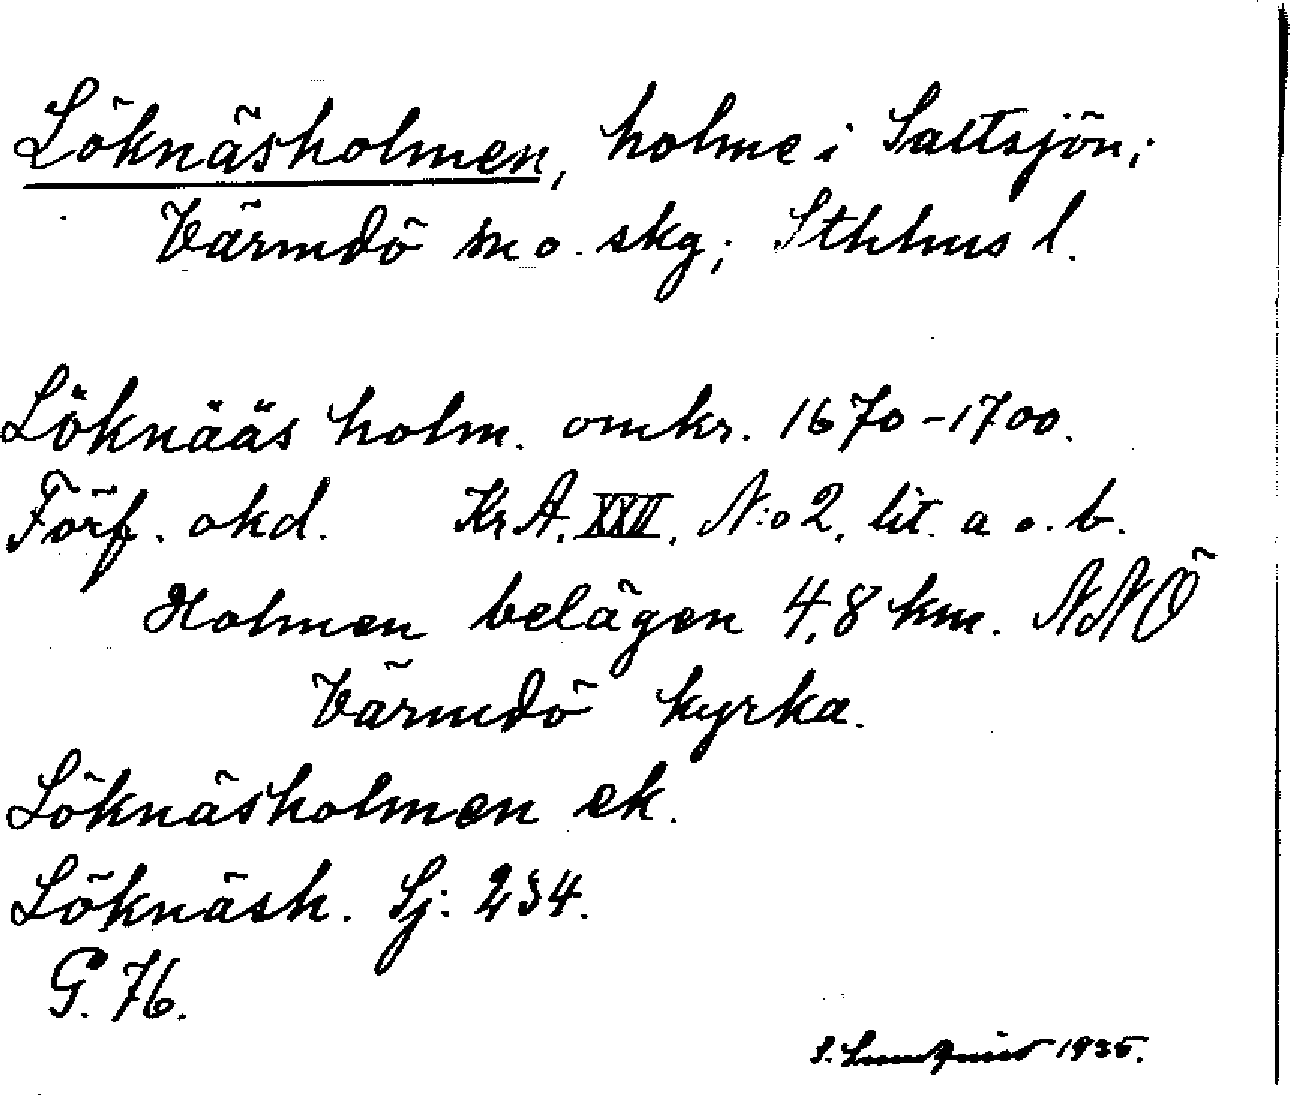 Löknäsholmen, holme i Saltsjön;
Värmdö sn o. skg; Sthlms l.
Löknääs holm. omkr. 1670-1700.
Förf. okd. Kr A. XXII, N:o 2, lit. a o. b.
Holmen belägen 4,8 km. NNÖ
Värmdö kyrka.
Löknäsholmen ek.
Löknäsh. Sj: 234.
G. 76.
S. Lundquist 1935.